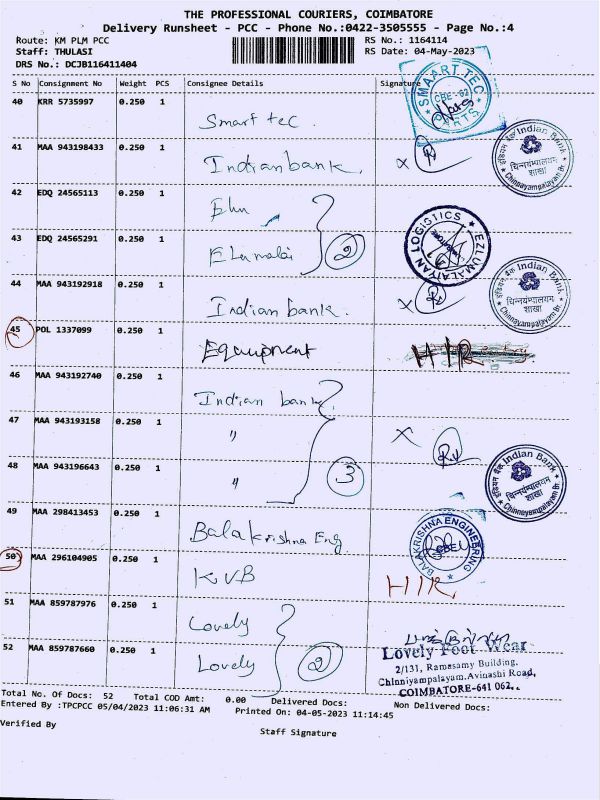 THE PROFESSIONAL COURIERS, COIMBATORE
Delivery Runsheet - PCC - Phone No.:0422-3505555 - Page No.:4
Route: KM PLM PCC RS No.: 1164114
Staff: THULASI RS Date: 04-May-2023
DRS No.: DCJB116411404
S No Consignment No Weight PCS Consignee Details Signature
40 KRR 5735997 0.250 1
Smart tec.
SMAART TEC
CBE-62
PARTS
41 MAA 943198433 0.250 1
Indian bank. x
इंडियन बैंक Indian Bank
चिन्नयमपालयम
शाखा
Chinnayampalayam Br.
42 EDQ 24565113 0.250 1
Elu
43 EDQ 24565291 0.250 1
Elumalai 2
EZLUMALAIYAN LOGISTICS
44 MAA 943192918 0.250 1
Indian bank. x
इंडियन बैंक Indian Bank
चिन्नयमपालयम
शाखा
Chinnayampalayam Br.
45 POL 1337099 0.250 1
Equipment HIR
46 MAA 943192740 0.250 1
Indian bank
47 MAA 943193158 0.250 1
" x
48 MAA 943196643 0.250 1
" 3
इंडियन बैंक Indian Bank
चिन्नयमपालयम
शाखा
Chinnayampalayam Br.
49 MAA 298413453 0.250 1
Balakrishna Eng
BALAKRISHNA ENGINEERING
CBE
50 MAA 296104905 0.250 1
KVB HIR.
51 MAA 859787976 0.250 1
Lovely
52 MAA 859787660 0.250 1
Lovely 2
Lovely Foot Wear
2/131, Ramasamy Building,
Chinniyampalayam, Avinashi Road,
COIMBATORE-641 062.
Total No. Of Docs: 52 Total COD Amt: 0.00 Delivered Docs: Non Delivered Docs:
Entered By :TPCPCC 05/04/2023 11:06:31 AM Printed On: 04-05-2023 11:14:45
Verified By
Staff Signature